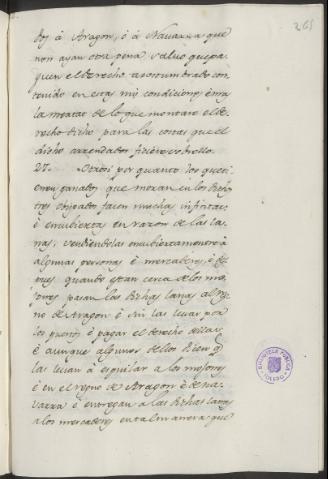 265
dos à Aragon, ó à Navarra que
non ayan otra pena salvo que pa
guen el derecho acostumbrado con
tenido en estas mis condiciones é mas
la meatad de lo que montare el de
recho dicho para las costas que el
dicho arrendador ficiere sobrello.
27. Otrosi por quanto los que ti
enen ganados que moran en los dichos
tres obispados facen muchas
é encubiertas en razon de las la
nas, vendiendolas encubiertamente à
algunas personas é mercaderes, é des
pues quando estan cerca de los mo
jones pasan las dichas lanas al rey
no de Aragon é sin las levar por
los puertos é pagar el derecho dellas
é aunque algunos dellos dicen q̃
las levan à esquilar a los mojones
é en el regno de Aragon é de Na
varra é entregan a las dichas lanas
a los mercaderes en tal manera que
BIBLIOTECA PUBLICA
TOLEDO